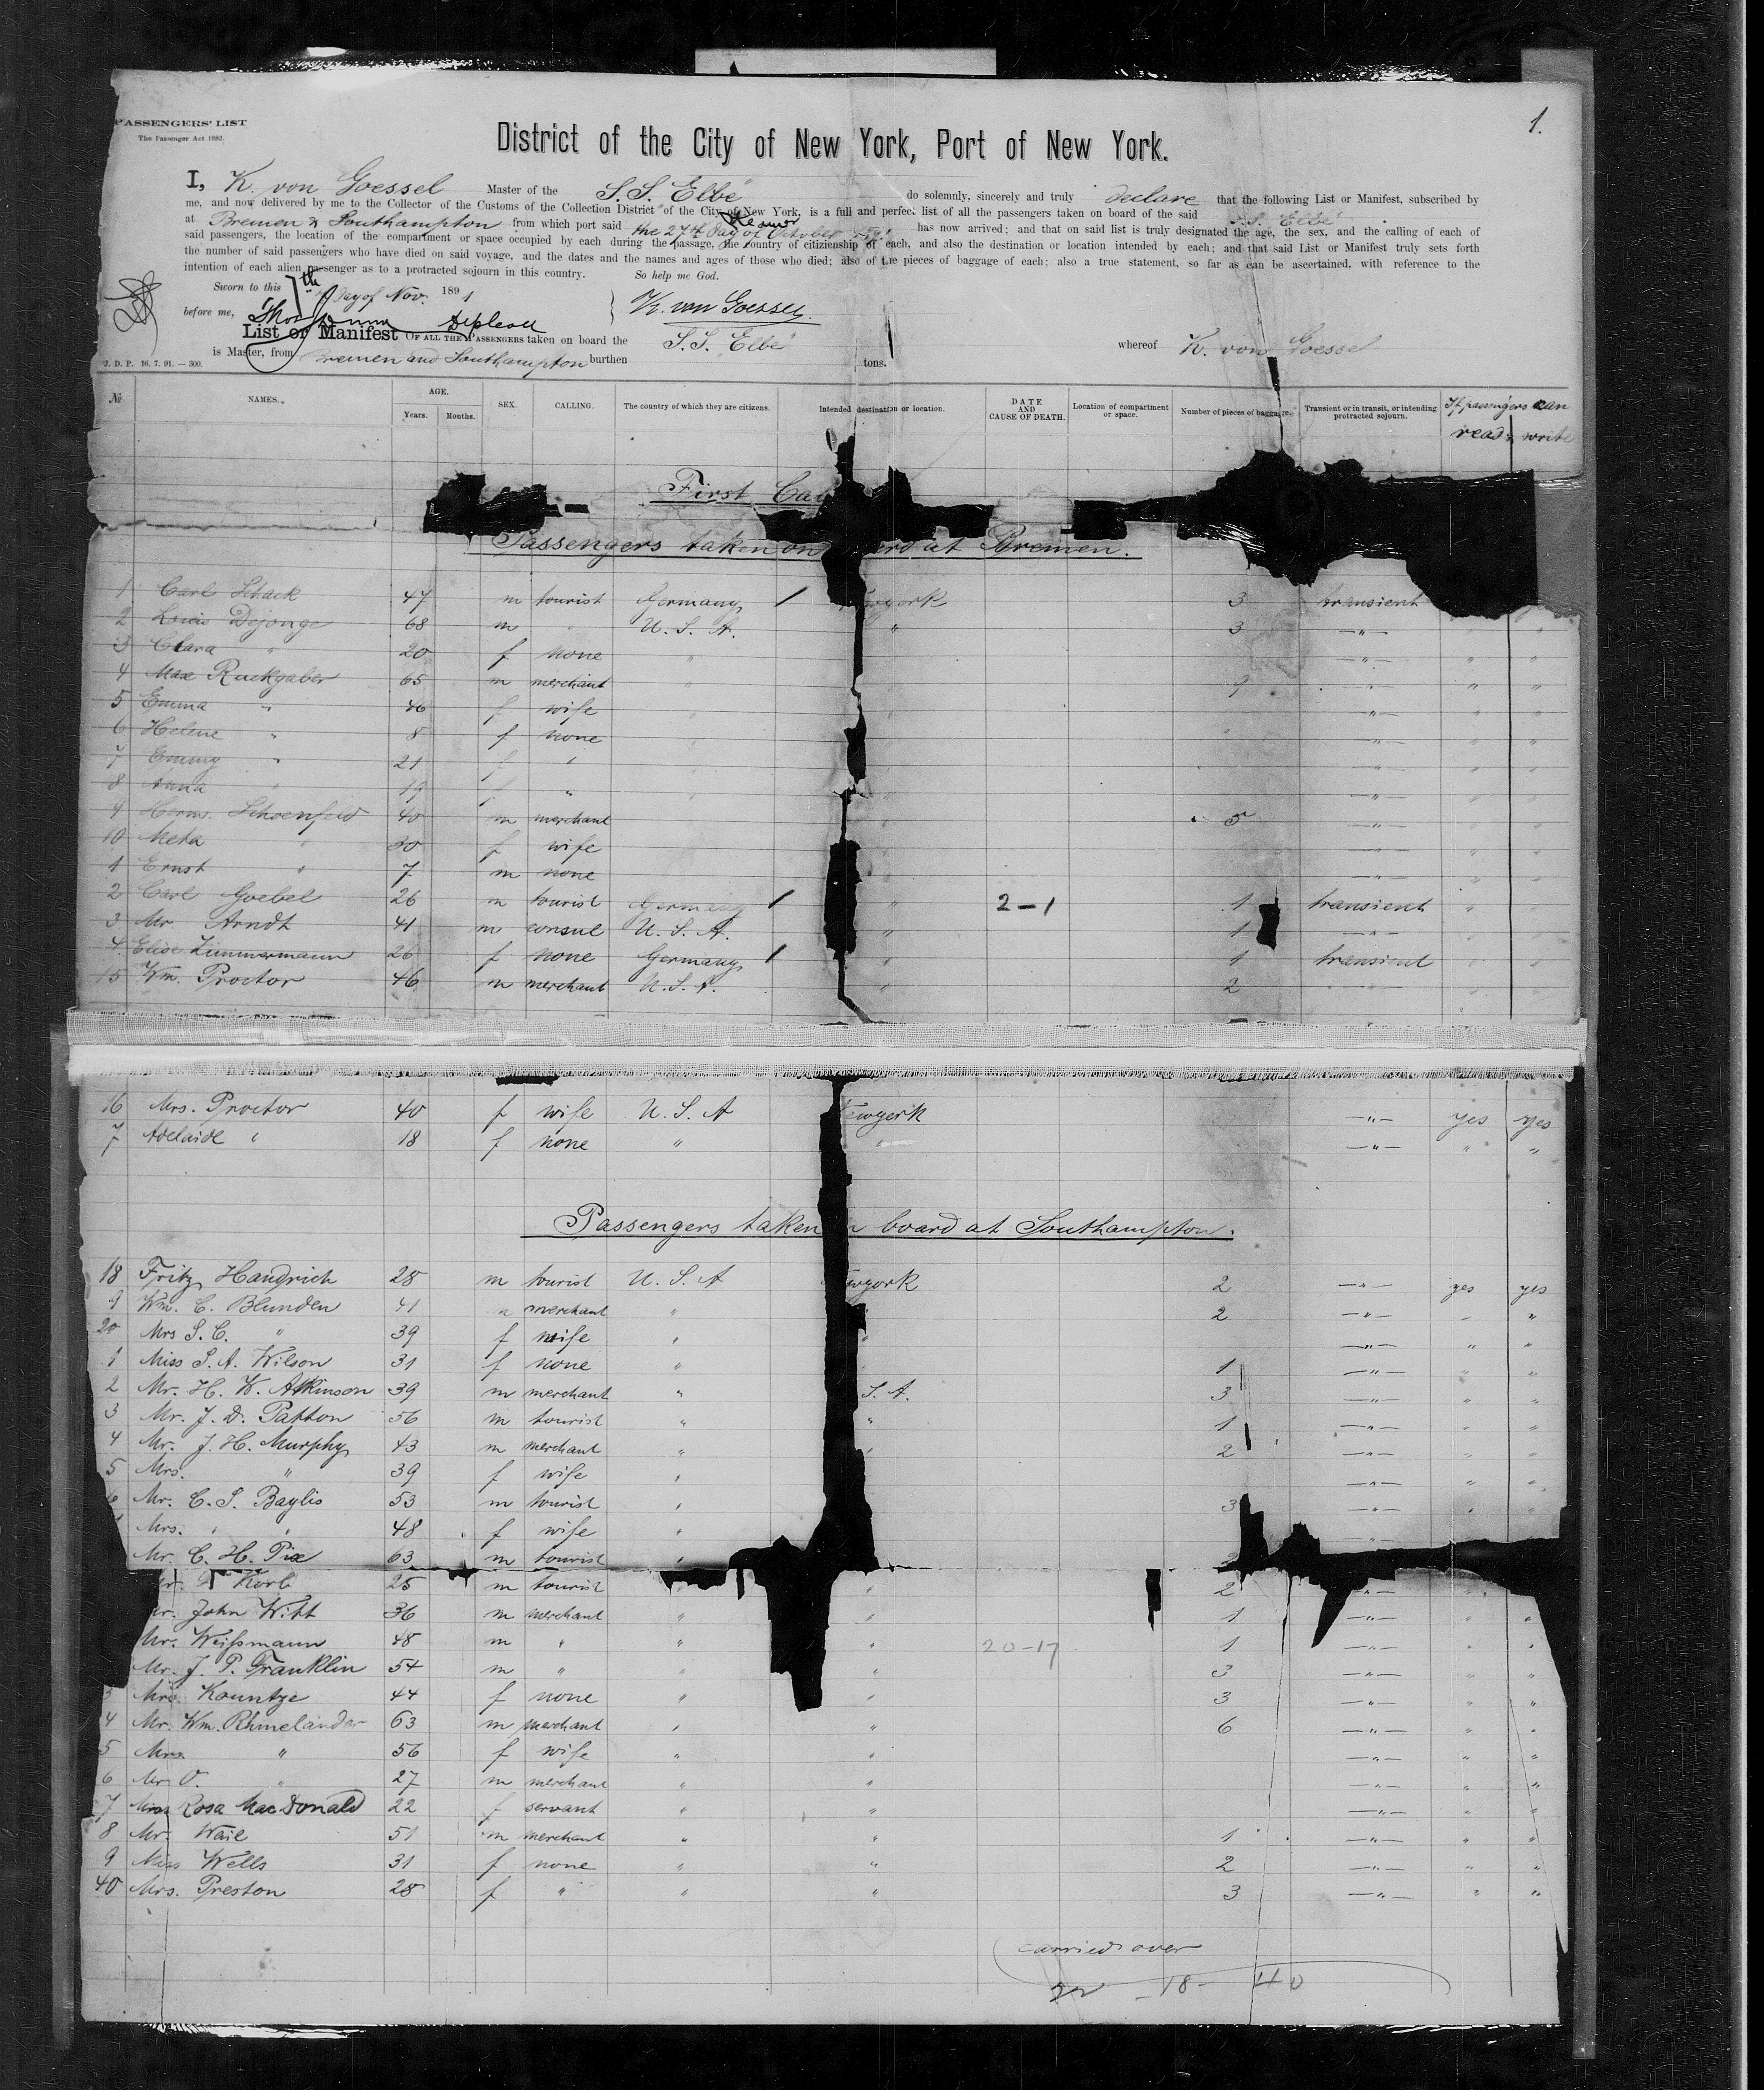 1.
PASSENGERS' LIST
The Passenger Act 1882.
District of the City of New York, Port of New York.
I, K. von Goessel Master of the S.S. "Elbe" do solemnly, sincerely and truly declare that the following List or Manifest, subscribed by
me, and now delivered by me to the Collector of the Customs of the Collection District of the City of New York, is a full and perfect list of all the passengers taken on board of the said S.S. "Elbe"
at Bremen & Southampton from which port said Steamer the 27th day of October 1891 has now arrived; and that on said list is truly designated the age, the sex, and the calling of each of
said passengers, the location of the compartment or space occupied by each during the passage, the country of citizienship of each, and also the destination or location intended by each; and that said List or Manifest truly sets forth
the number of said passengers who have died on said voyage, and the dates and the names and ages of those who died; also of the pieces of baggage of each; also a true statement, so far as can be ascertained, with reference to the
intention of each alien passenger as to a protracted sojourn in this country. So help me God.
Sworn to this 7th day of Nov. 1891
before me, K. von Goessel.
List or Manifest OF ALL THE PASSENGERS taken on board the S.S. "Elbe" whereof K. von Goessel
is Master, from Bremen and Southampton burthen tons.
J. D. P. 16. 7. 91. — 300.
№ NAMES. AGE. Years. Months. SEX. CALLING. The country of which they are citizens. Intended destination or location. DATE AND CAUSE OF DEATH. Location of compartment or space. Number of pieces of baggage. Transient or in transit, or intending protracted sojourn. If passengers can read & write
First Ca
Passengers taken on board at Bremen.
1 Carl Schack 47 m tourist Germany / ewyork 3 transient
2 Louis Dejonge 68 m " U. S. A. " 3 —"— " "
3 Clara " 20 f none " —"— " "
4 Max Ruckgaber 65 m merchant " 9 —"— " "
5 Emma " 46 f wife " —"— " "
6 Helene " 8 f none " —"— " "
7 Emmy " 21 f " —"— " "
8 Anna " 19 f " —"— " "
9 Herm. Schoenfeld 40 m merchant 5 —"— " "
10 Meta " 30 f wife " —"— " "
1 Ernst " 7 m none " —"— " "
2 Carl Goebel 26 m tourist Germany / " 2-1 1 transient " "
3 Mr Arndt 41 m consul U. S. A. " 1 —"— " "
4 Elise Zimmermann 26 f none Germany / " 1 transient " "
15 Wm. Proctor 46 m merchant U. S. A. " 2 " " "
16 Mrs. Proctor 40 f wife U. S. A ewyork —"— yes yes
7 Adelaide " 18 f none " " —"— " "
Passengers taken on board at Southampton.
18 Fritz Handrich 28 m tourist U. S. A ewyork 2 —"— yes yes
9 Wm. C. Blunden 41 m merchant " 2 —"— " "
20 Mrs S. C. " 39 f wife " " —"— " "
1 Miss S. A. Wilson 31 f none " 1 —"— " "
2 Mr. H. W. Atkinson 39 m merchant " S. A. 3 —"— " "
3 Mr. J. D. Patton 56 m tourist " " 1 —"— " "
4 Mr. J. H. Murphy 43 m merchant " " 2 —"— " "
5 Mrs. " 39 f wife " —"— " "
6 Mr. C. S. Baylis 53 m tourist " 3 —"— " "
Mrs. " " 48 f wife " "
Mr. C. H. Pix 63 m tourist " 2
Korb 25 m tourist " " 2 —"— "
Mr. John Witt 36 m merchant " " 1 —"— " "
Mr. Weißmann 48 m " " " 20-17 1 —"— " "
Mr. J. P. Franklin 54 m " " " 3 —"— " "
3 Mrs. Kountze 44 f none " " 3 —"— " "
4 Mr. Wm. Rhinelander 63 m merchant " " 6 —"— " "
5 Mrs. " 56 f wife " " —"— " "
6 Mr. O. " 27 m merchant " " —"— " "
7 Miss Rosa MacDonald 22 f servant " " —"— " "
8 Mr. Wail 51 m merchant " " 1 —"— " "
9 Miss Wells 31 f none " " 2 —"— " "
40 Mrs. Preston 28 f " " " 3 —"— " "
carried over
22 - 18 - 40